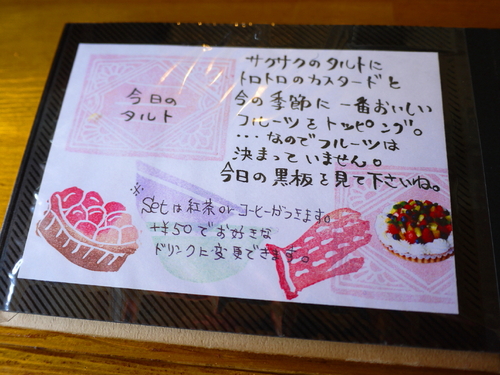 今日の
タルト
サクサクのタルトに
トロトロのカスタードと
今の季節に一番おいしい
フルーツをトッピング。
・・・なのでフルーツは
決まっていません。
今日の黒板を見て下さいね。
※
Setは紅茶orコーヒーがつきます。
+¥50でお好きな
ドリンクに変更できます。